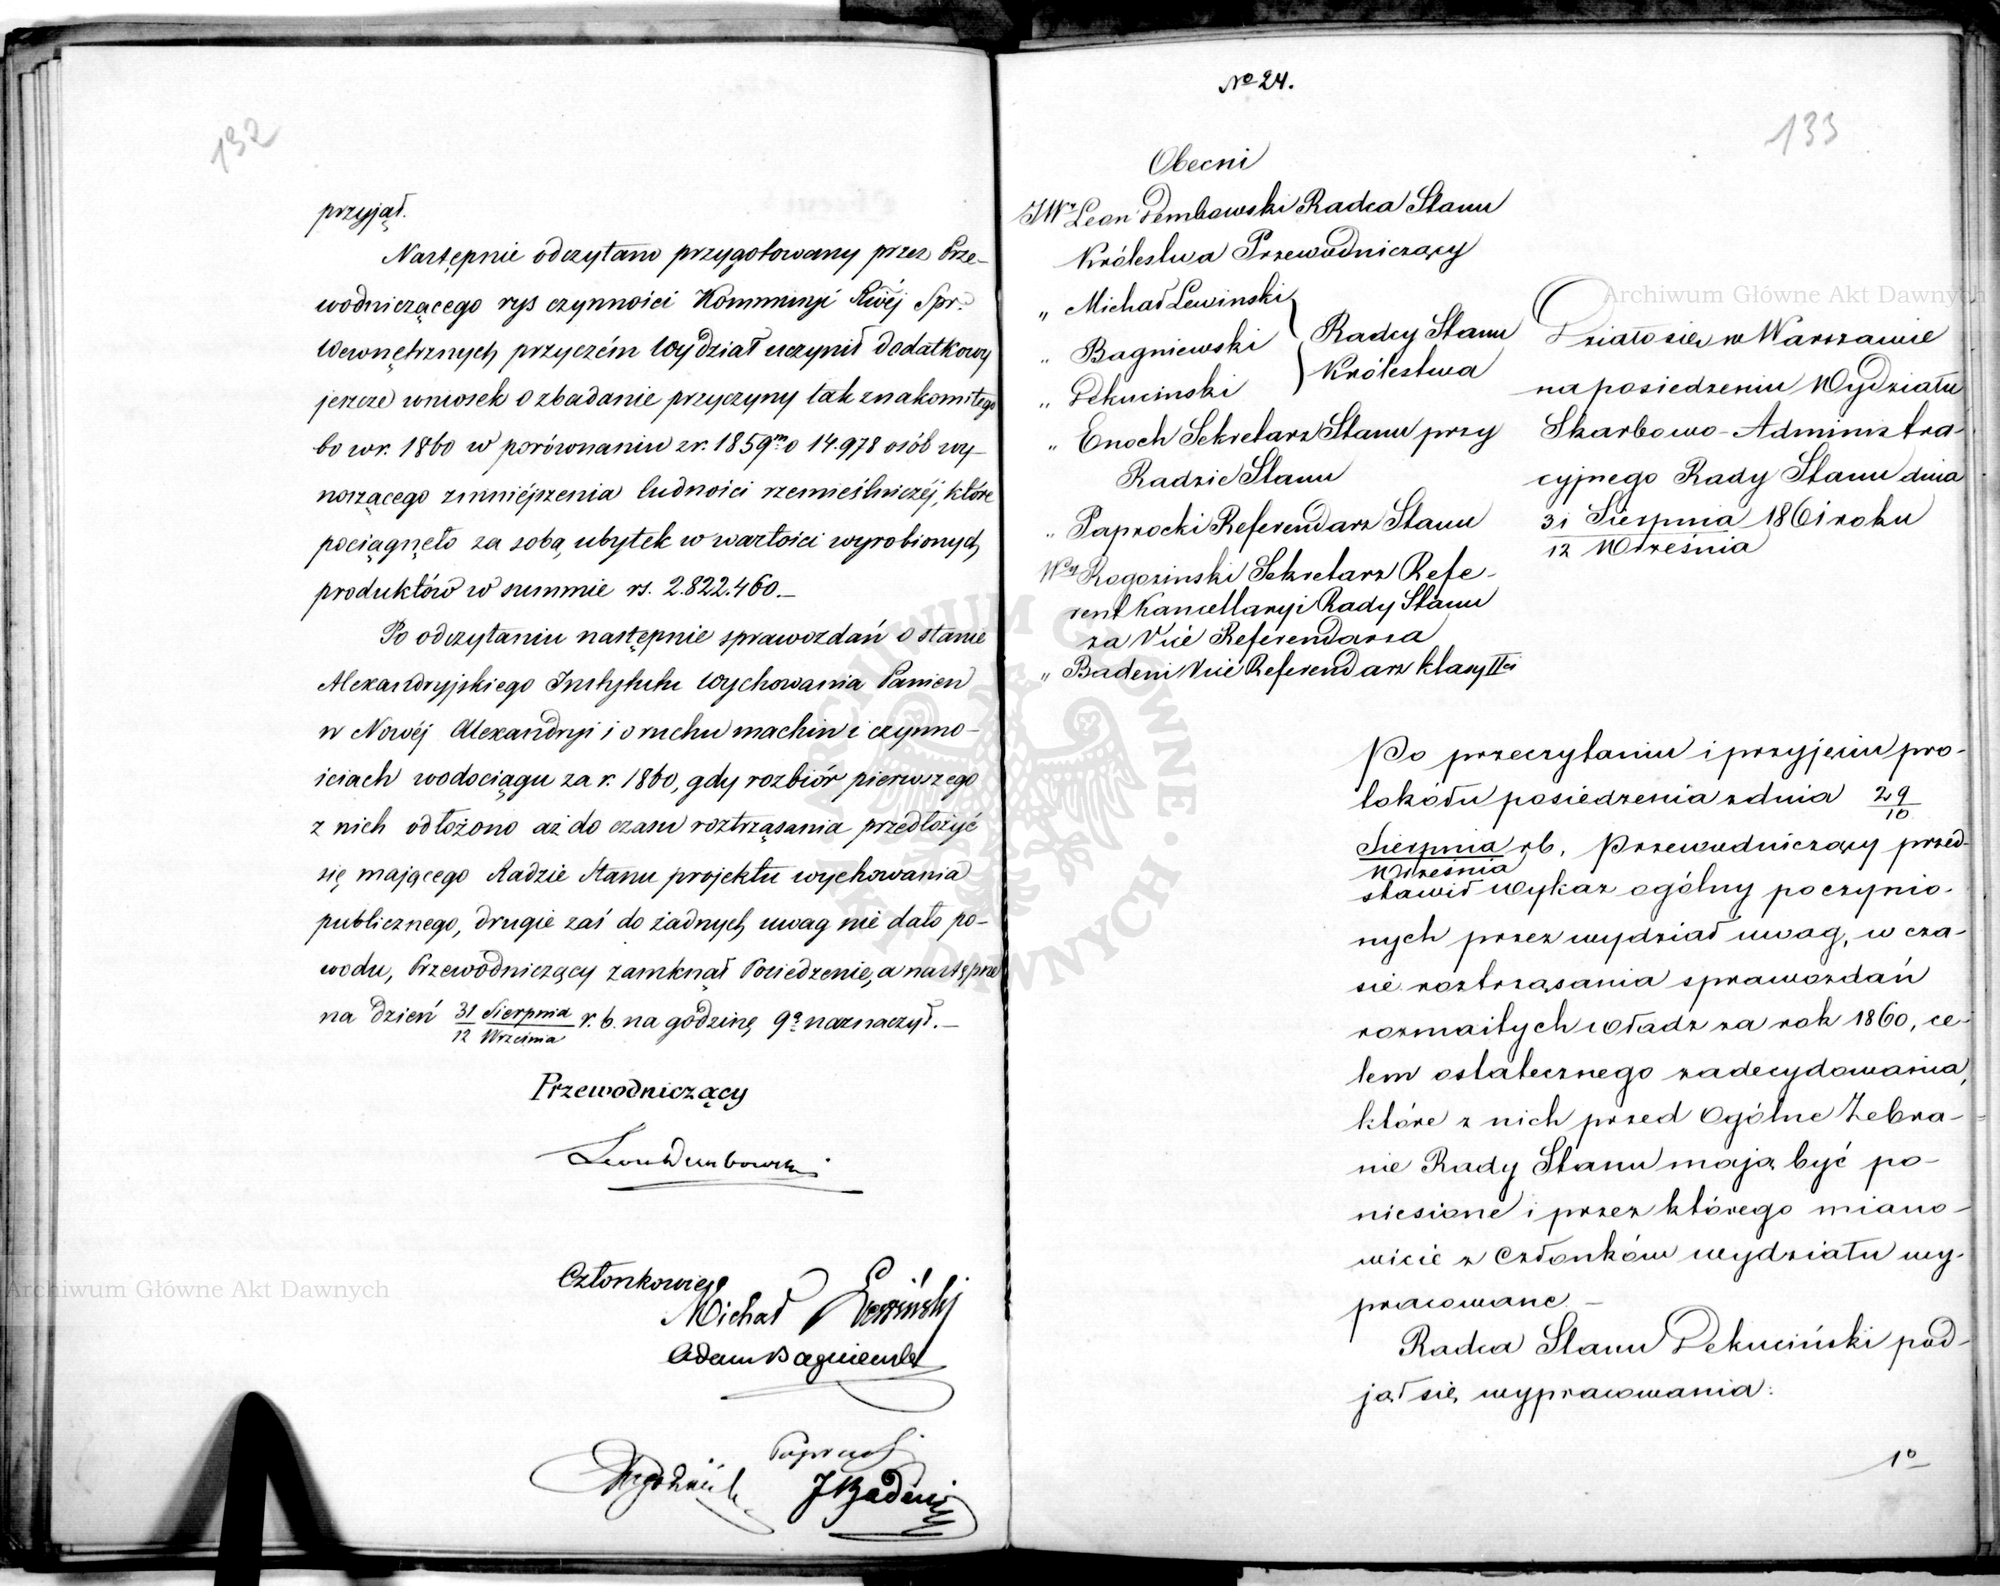 132
przyjął.
Następnie odczytano przygotowany przez Prze-
wodniczącego rys czynności Kommissyi Rwéj Spr.
Wewnętrznych przyczém Wydział uczynił dodatkowy
jeszcze wniosek o zbadanie przyczyny tak znakomitego
bo w r. 1860 w porównaniu z r. 1859m o 14.978 osób wy-
noszącego zmniéjszenia ludności rzemieślniczéj, które
pociągnęło za sobą ubytek w wartości wyrobionych
produktów w summie rs. 2.822.460.—
Po odczytaniu następnie sprawozdań o stanie
Alexandryjskiego Instytutu Wychowania Panien
w Nowéj Alexandryi i o ruchu machin i czynno-
ściach wodociągu za r. 1860, gdy rozbiór pierwszego
z nich odłożono aż do czasu roztrząsania przedłożyć
się mającego Radzie Stanu projektu wychowania
publicznego, drugie zaś do żadnych uwag nie dało po-
wodu, Przewodniczący zamknął Posiedzenie, a następne
na dzień 31/12 Sierpnia/Września r. b. na godzinę 9a naznaczył.—
Przewodniczący
Leon Dembowski
Członkowie
Michał Lewiński
Adam Bagniewski
Paprocki
JBadeni
No 24.
133
Obecni
JWr Leon Dembowski Radca Stanu
Królestwa Przewodniczący
„ Michał Lewinski
„ Bagniewski
„ Dekucinski
Radcy Stanu
Królestwa
„ Enoch Sekretarz Stanu przy
Radzie Stanu
„ Paprocki Referendarz Stanu
Wny Rogozinski Sekretarz Refe-
rent Kancellaryi Rady Stanu
za Vice Referendarza
„ Badeni Vice Referendarz klasy IIei
Działo się w Warszawie
na posiedzeniu Wydziału
Skarbowo-Administra-
cyjnego Rady Stanu dnia
31/12 Sierpnia/Września 1861 roku
Po przeczytaniu i przyjęciu pro-
tokółu posiedzenia z dnia 29/10
Sierpnia/Września rb. Przewodniczący przed-
stawił wykaz ogólny poczynio-
nych przez wydział uwag, w cza-
sie roztrząsania sprawozdań
rozmaitych władz za rok 1860, ce-
lem ostatecznego zadecydowania,
które z nich przed Ogólne Zebra-
nie Rady Stanu mają być po-
niesione i przez którego miano-
wicie z Członków wydziału wy-
pracowane.—
Radca Stanu Dekuciński pod-
jął się wypracowania:
1o
Archiwum Główne Akt Dawnych
Archiwum Główne Akt Dawnych
ARCHIWUM GŁÓWNE AKT DAWNYCH